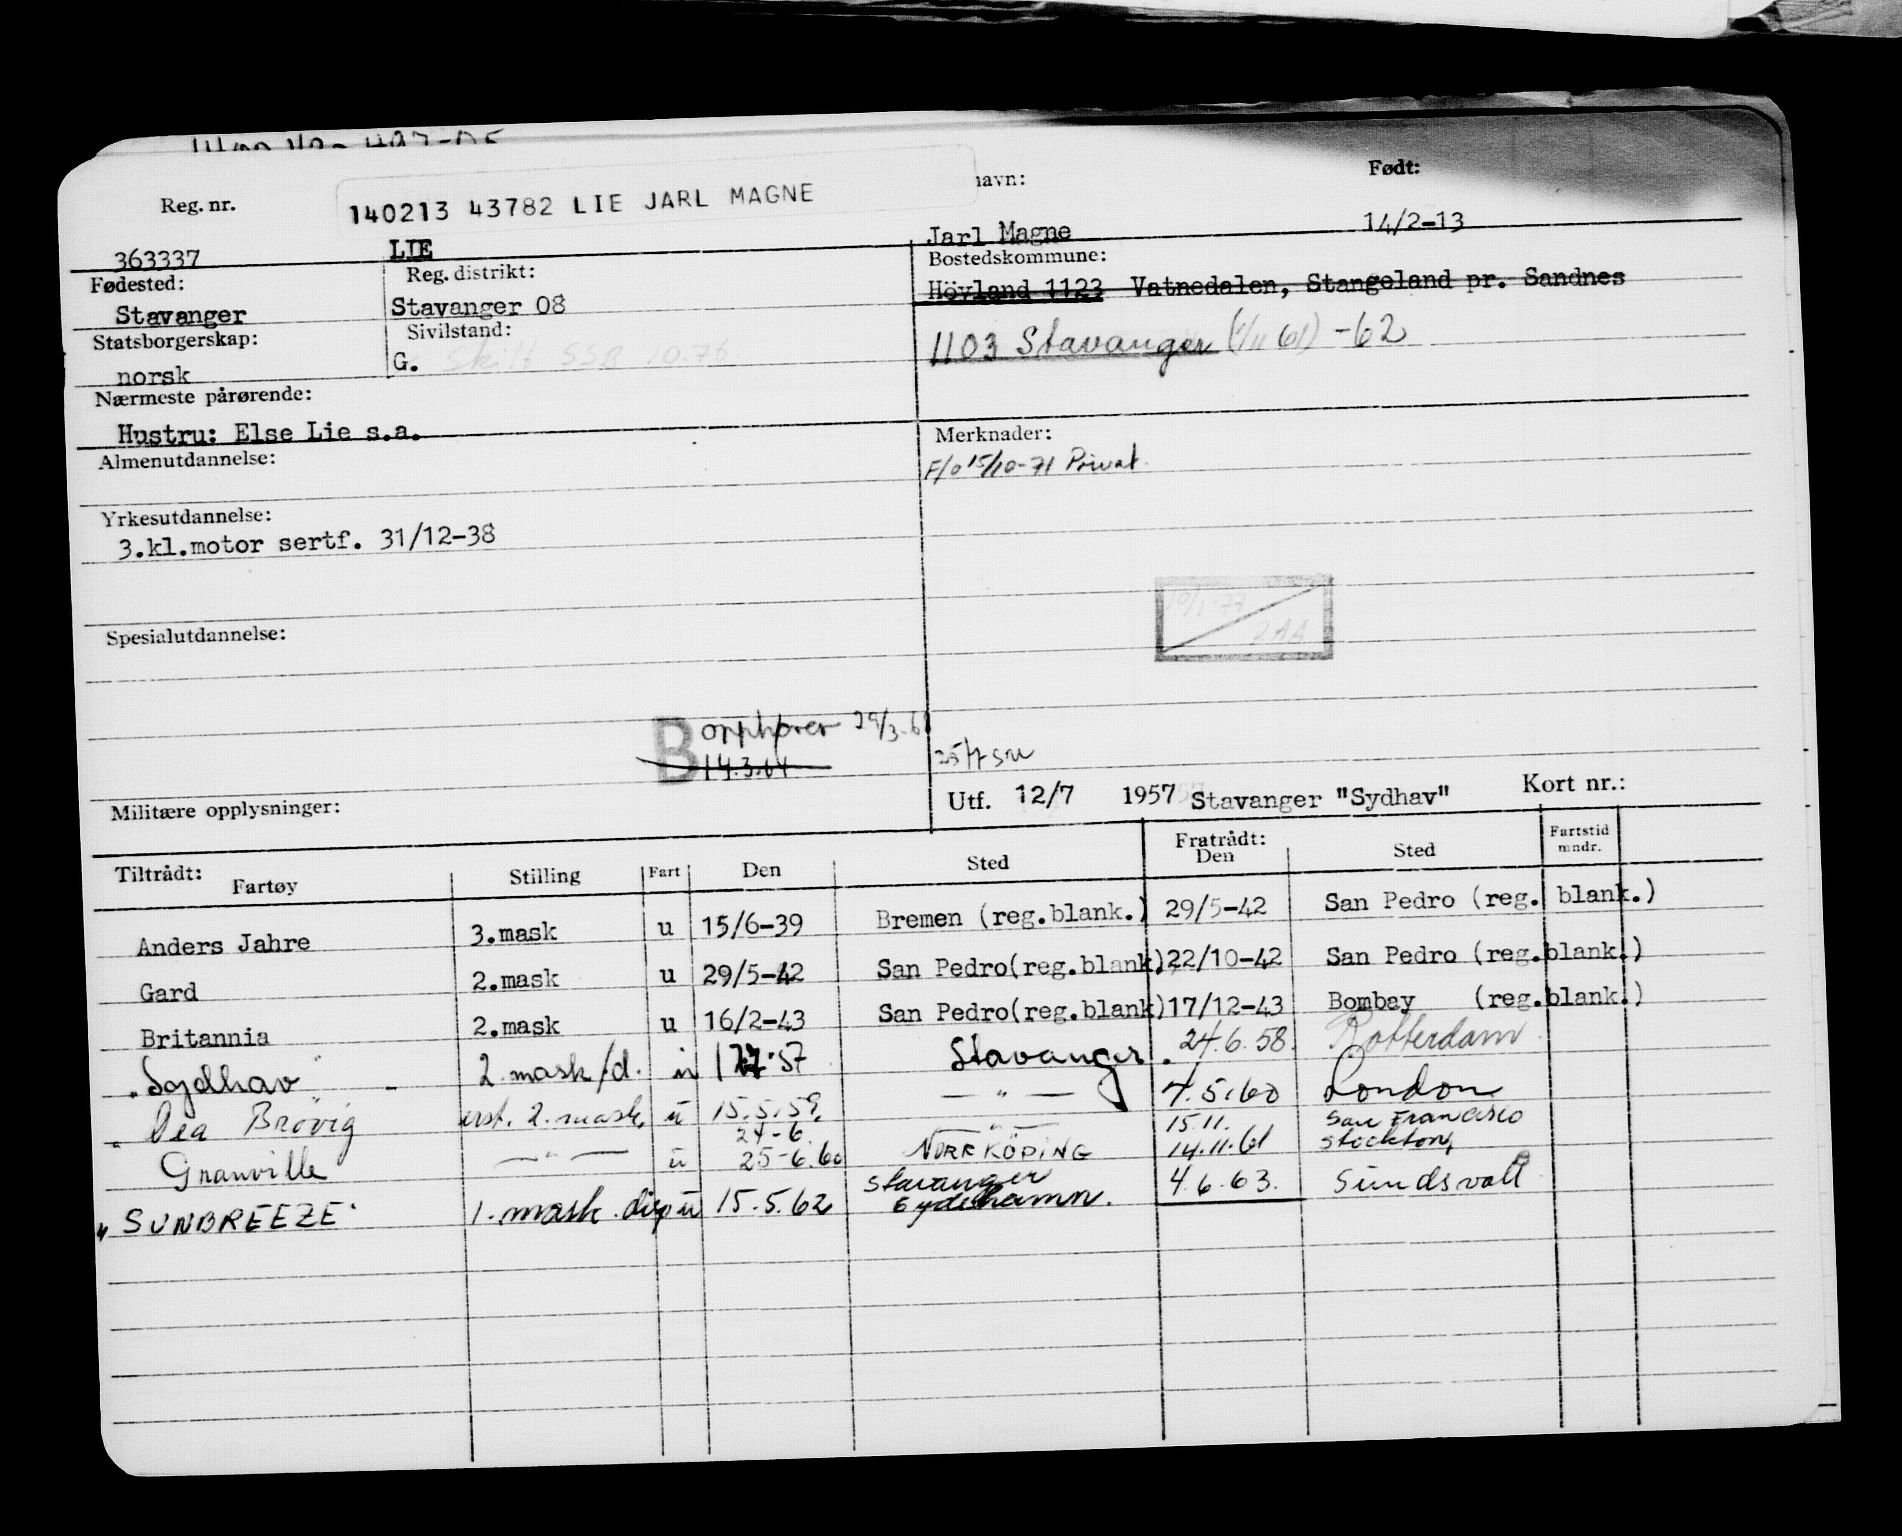 Reg. nr.
140213 43782 LIE JARL MAGNE
navn:
Født:
363337
LIE
Jarl Magne
14/2-13
Fødested:
Reg. distrikt:
Bostedskommune:
Stavanger
Stavanger 08
Höyland 1123 Vatnedalen, Stangeland pr. Sandnes
Statsborgerskap:
Sivilstand:
1103 Stavanger (1/11 61) -62
norsk
G. Skilt SSB 10.76
Nærmeste pårørende:
Hustru: Else Lie s.a.
Merknader:
Almenutdannelse:
F/o 15/10-71 Privat.
Yrkesutdannelse:
3.kl.motor sertf. 31/12-38
Spesialutdannelse:
B opphører
14.3.64
Militære opplysninger:
Utf. 12/7 1957 Stavanger "Sydhav"
Kort nr.:
Tiltrådt:
Fartøy Stilling Fart Den Sted
Fratrådt:
Den Sted
Fartstid
mndr.
Anders Jahre 3.mask u 15/6-39 Bremen (reg.blank.) 29/5-42 San Pedro (reg. blank.)
Gard 2.mask u 29/5-42 San Pedro(reg.blank). 22/10-42 San Pedro (reg.blank.)
Britannia 2.mask u 16/2-43 San Pedro(reg.blank) 17/12-43 Bombay (reg.blank.)
"Sydhav" 2 mask/d. u Stavanger. 24.6.58. Rotterdam
" Dea Brövig 2. mask. u 15.5.59. — " — 7.5.60 London
24-6. — " — 15.11. San Francisco
Granville — " — u 25-6.60 NORRKÖPING 14.11.61 Stockton
"SUNBREEZE" 1. mask. disp u 15.5.62 Stavanger 4.6.63. Sundsvall
Eydehamn.